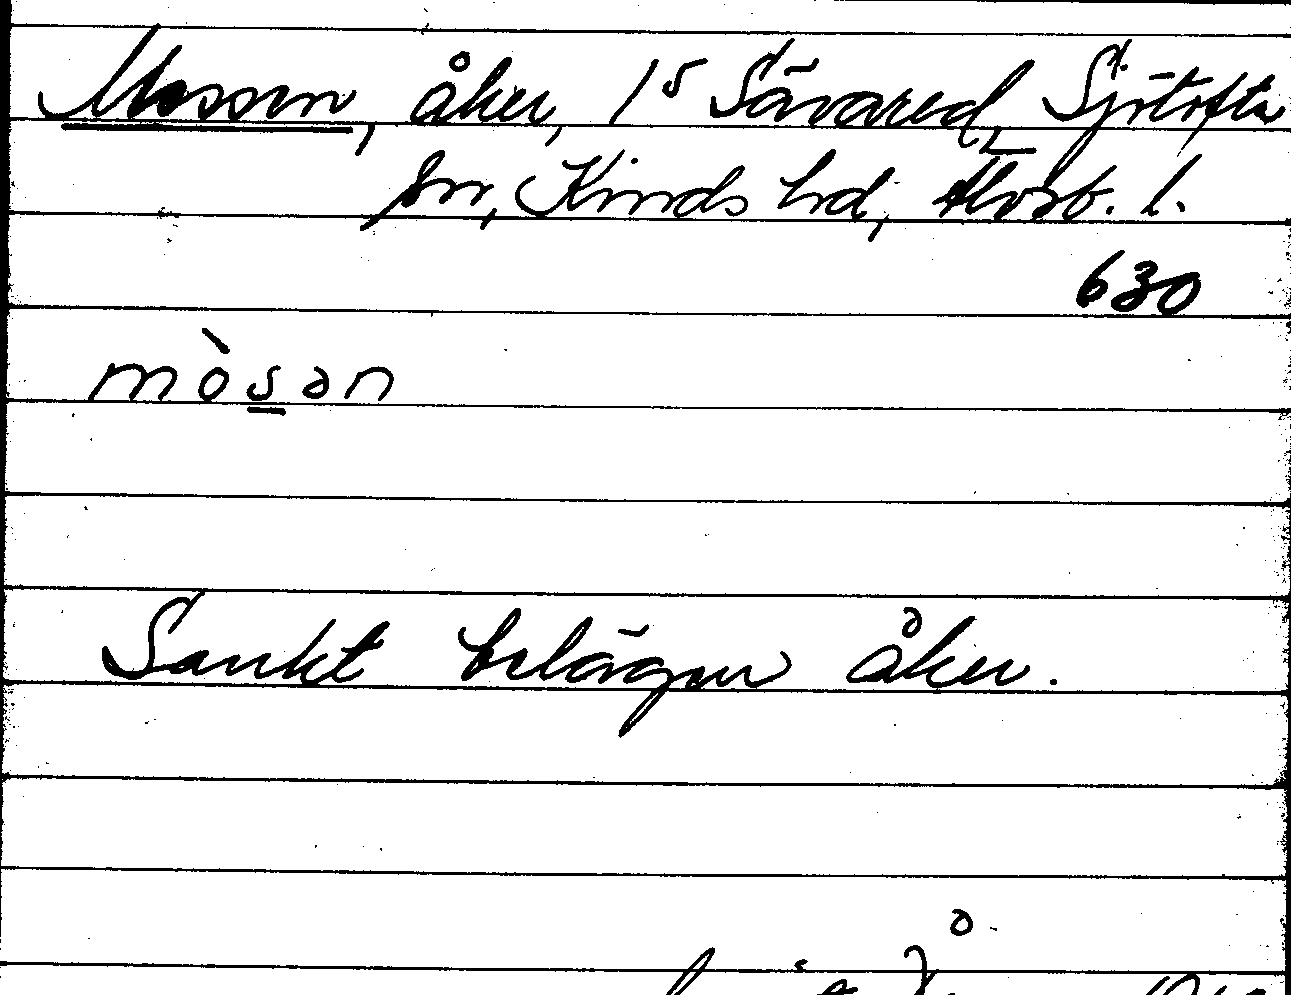 Mossen, åker, 1⁵ Sävared, Sjötofta
sn, Kinds hd, Älvsb. l.
630
mòsən
Sankt belägen åker.